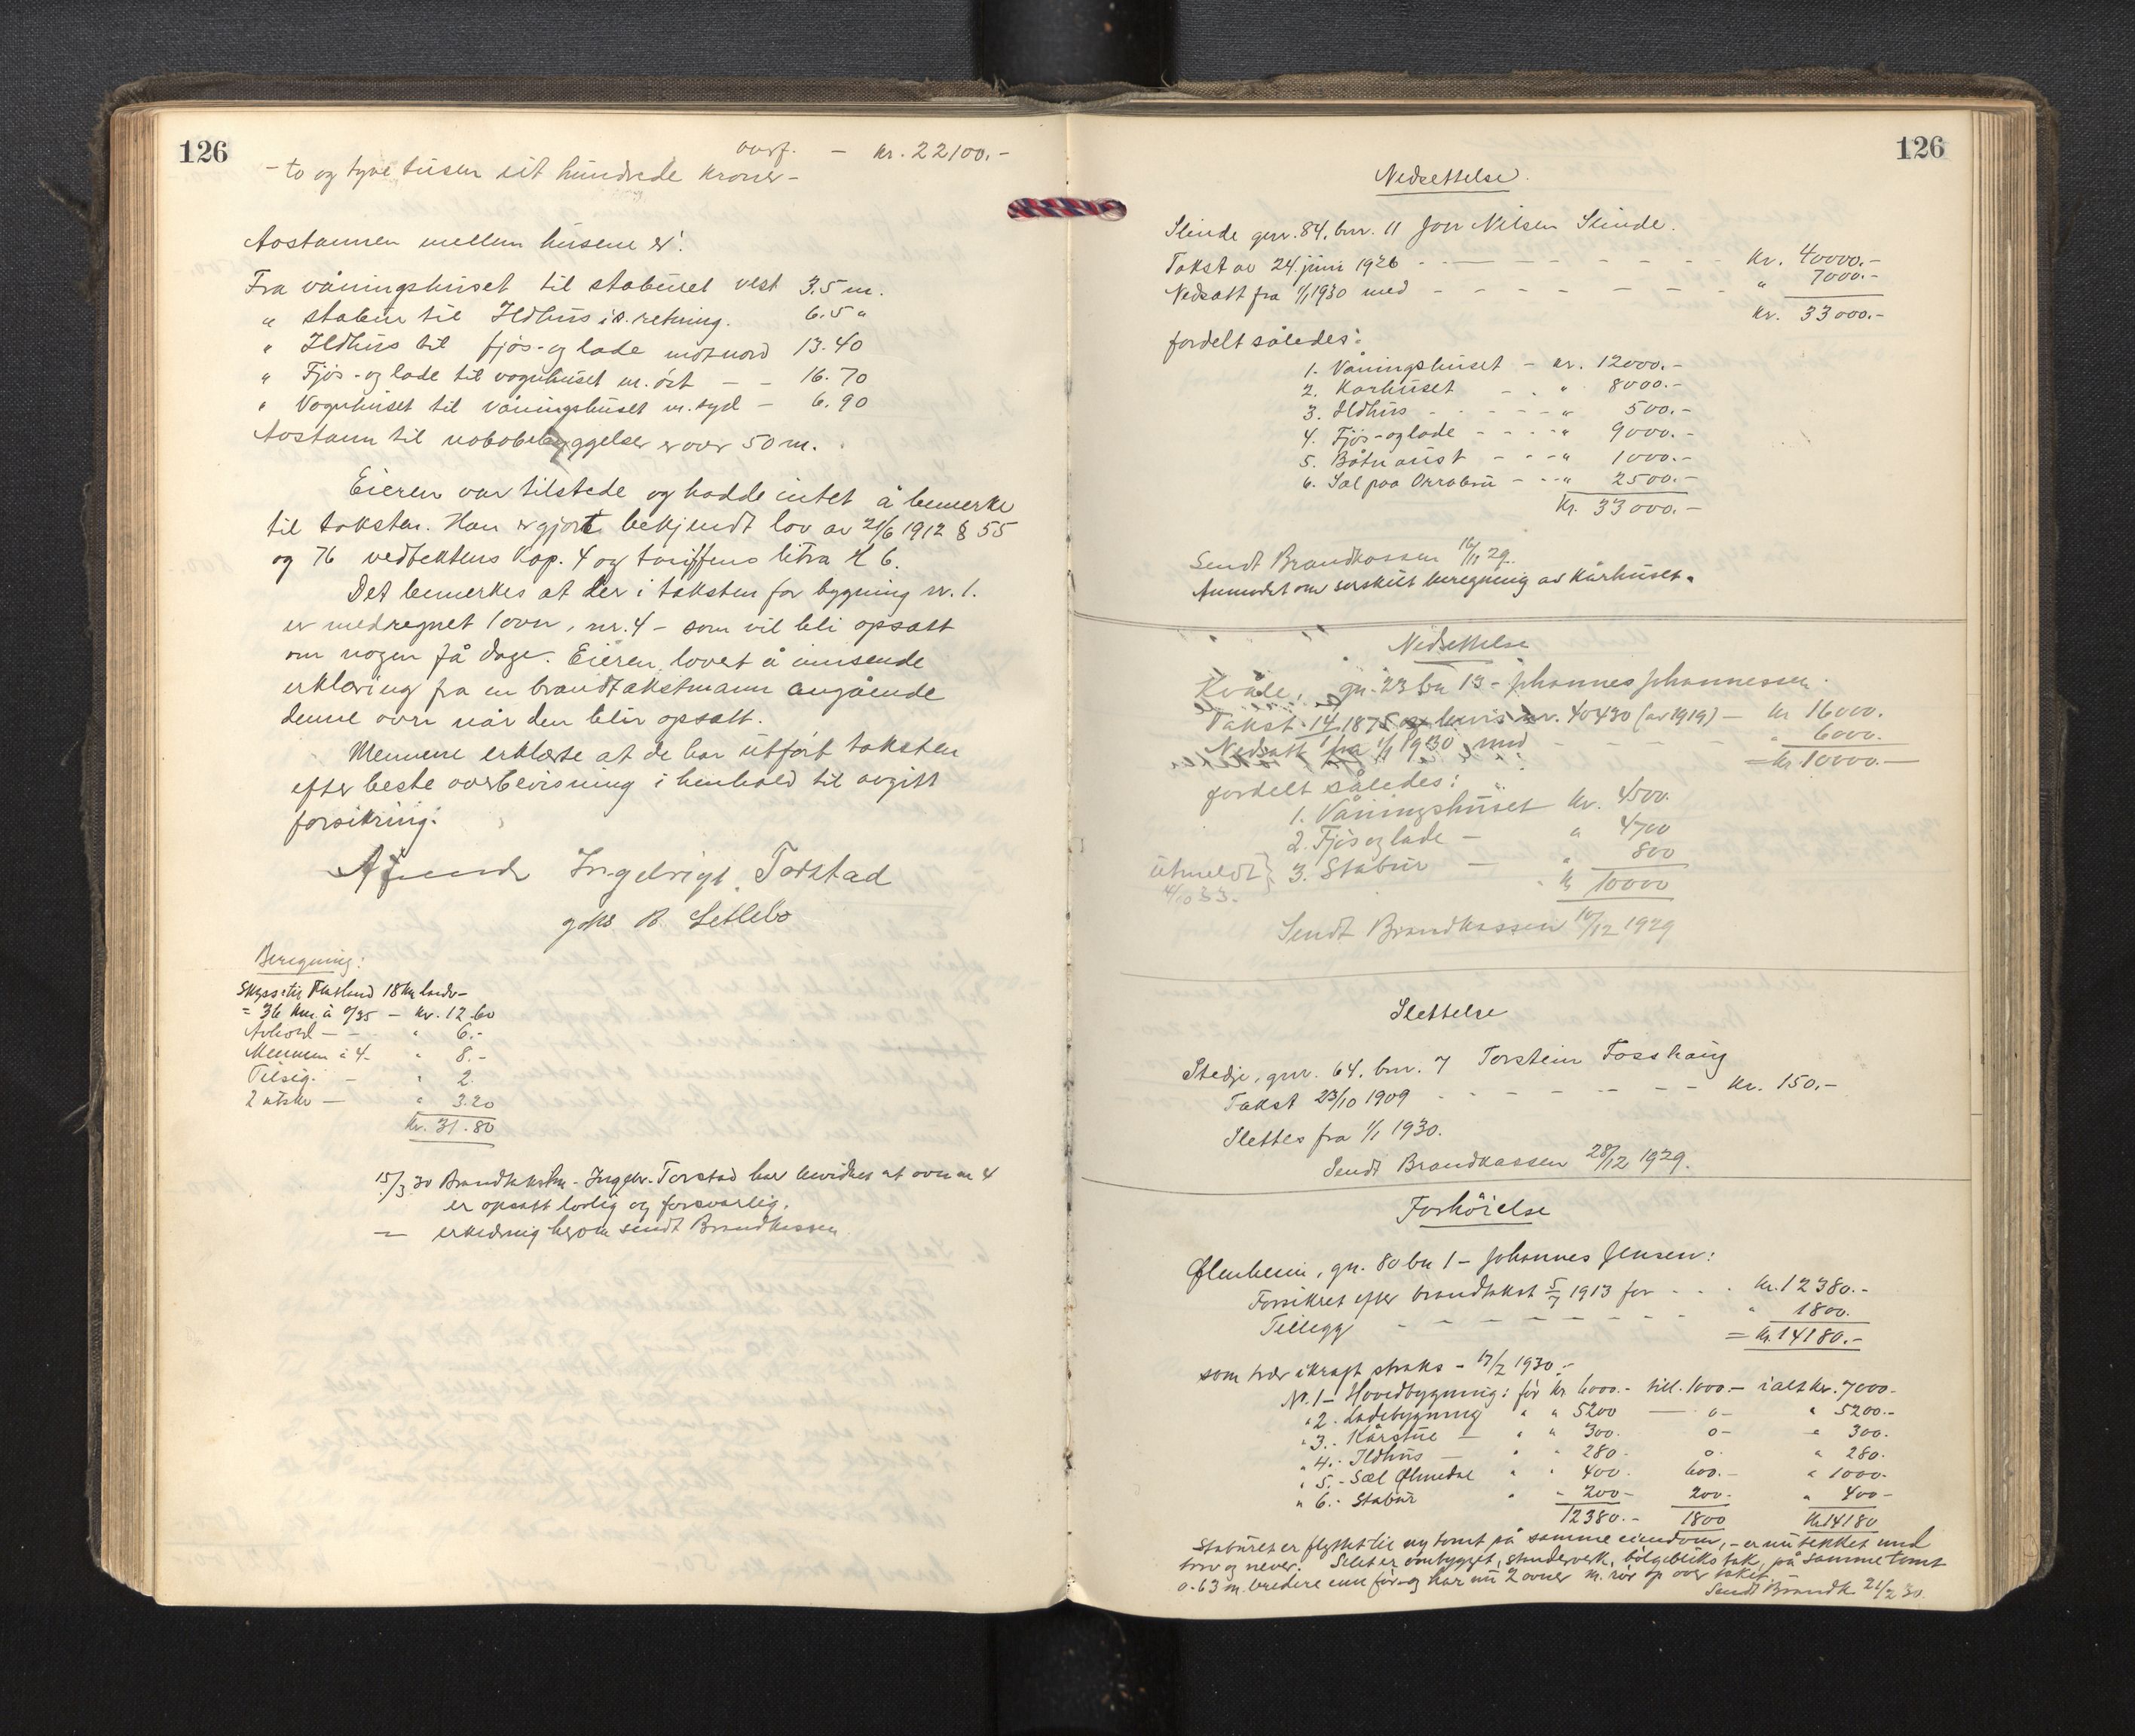 126
overf. - kr. 22100.-
- to og tyve tusen eit hundrede kroner -
Avstannen mellem husene er:
Fra våningshuset til staburet vest 3.5 m.
" stabur til Ildhus i s. retning. 6.5 "
" Ildhus til fjøs- og lade mot nord 13.40
" Fjøs- og lade til vognhuset m. øst - - 16.70
" Vognhuset til våningshuset m. syd - 6.90
Avstann til nabobebyggelse er over 50 m.
Eieren var tilstede og hadde intet å bemerke
til taksten. Han er gjort bekjendt lov av 21/6 1912 § 55
og 76 vedtektens Kap. 4 og tariffens litra H 6.
Det bemerkes at der i taksten for bygning nr. 1.
er medregnet 1 ovn, nr. 4 - som vil bli opsatt
om nogen få dage. Eieren lovet å innsende
erklæring fra en brandtakstmann angående
denne ovn når den blir opsatt.
Mennene erklærte at de har utført taksten
efter beste overbevisning i henhold til avgitt
forsikring.
Ingebrigt Torstad
B. Setlebo
Beregning:
Skyss til 18 km lands-
= 36 km à 0/35 - kr. 12.60
Avhold - - " 6.-
Mennene à 4- " 8.-
Tilsig. - " 2.
2 utskr - " 3.20
kr. 31.80
15/3 30 Brandtakstm. Ingebr. Torstad har bevidnet at ovn nr 4
er opsatt lovlig og forsvarlig.
— erklæring herom sendt Brandkassen
126
Nedsettelse.
Slinde gnr. 84, bnr. 11 Jon Nilsen Slinde.
Takst av 24. juni 1926 - - - - - - - kr. 40000.-
Nedsatt fra 1/1 1930 med - - - - - - - " 7000.-
kr. 33000.-
fordelt således:
1. Våningshuset - kr. 12000.-
2. Kårhuset - - " 8000.-
3. Ildhus - - - - " 500.-
4. Fjøs- og lade - - - " 9000.-
5. Båtnaust - - - " 1000.-
6. Sæl paa Orrabru - - " 2500.-
kr. 33000.-
Sendt Brandkassen 16/11 29.
Anmodet om serskilt beregning av Kårhuset.
Nedsettelse
Kvåle, gn. 23 bn 13 - Johannes Johannessen.
Takst 14/ 1875 bevis nr. 40430 (av 1919) - kr 16000.
Nedsatt fra 1/1 1930 med - - - - - " 6000.
= kr 10000.-
fordelt således:
1. Våningshuset kr. 4500.
2. Fjøs og lade - " 4700
utmeldt } 3. Stabur - " 800
4/10 33.
kr 10000
Sendt Brandkassen 10/12 1929
Slettelse
Stedje, gnr. 64, bnr. 7 Torstein Fosshaug
Takst 23/10 1909 - - - - - - - kr. 150.-
Slettes fra 1/1 1930.
Sendt Brandkassen 28/12 1929.
Forhöielse
Ølmheim, gn. 80 bn 1 - Johannes Jensen:
Forsikret efter brandtakst 5/7 1913 for - - - kr. 12380.-
Tillegg - - - - - - - - " 1800.
= kr. 14180.-
som trær ikraft straks - 17/2 1930.-
Nr. 1 - Hovedbygning: för kr 6000.- till. 1000.- i alt kr. 7000.-
" 2. Ladebygning " " 5200 — 0- " 5200.-
" 3. Kårstue - " " 300. 0- " 300.
" 4. Ildhus - " " 280.- 0- " 280.
" 5.- Sæl Ølmedal " " 400. 600.- " 1000.-
" 6.- Stabur " " 200- 200- " 400-
12380.- 1800 kr 14180
Staburet er flyttet til ny tomt på samme eiendom, - er nu tekket med
torv og never. Selet er ombygget, stenderverk, bölgebliks tak, på samme tomt
0.63 m. bredere enn för - og har nu 2 ovner m. rör op over taket.
Sendt Brandk. 21/2 30.